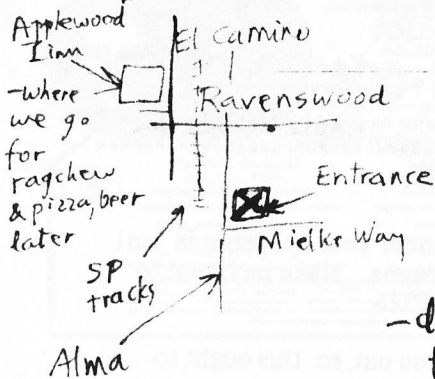 Applewood
Inn
-where
we go
for
ragchew
& pizza, beer
later
El Camino
Ravenswood
Entrance
Mielke Way
SP
tracks
Alma